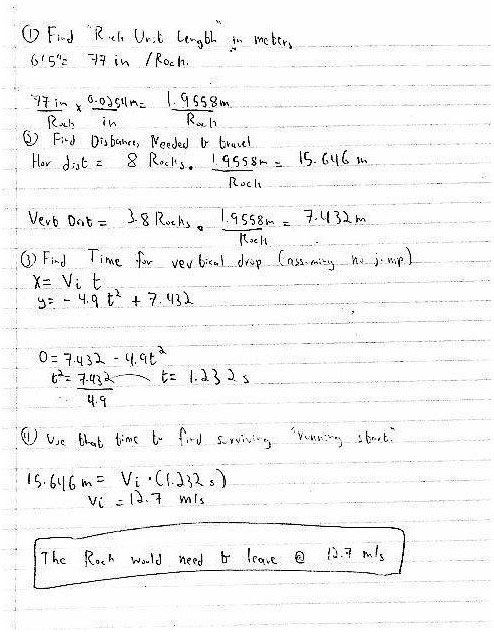 ① Find "Rock Unit Length" in meters
6'5" = 77 in / Rock.
77 in x 0.0254m = 1.9558m
Rock in Rock
② Find Distances Needed to travel
Hor dist = 8 Rocks . 1.9558m = 15.646 m
Rock
Vert Dist = 3.8 Rocks . 1.9558m = 7.432m
Rock
③ Find Time for vertical drop (assuming no jump)
x = Vi t
y = - 4.9 t² + 7.432
0 = 7.432 - 4.9t²
t² = 7.432 t = 1.232 s
4.9
④ Use that time to find surviving "running start."
15.646 m = Vi · (1.232 s)
Vi = 12.7 m/s
The Rock would need to leave @ 12.7 m/s